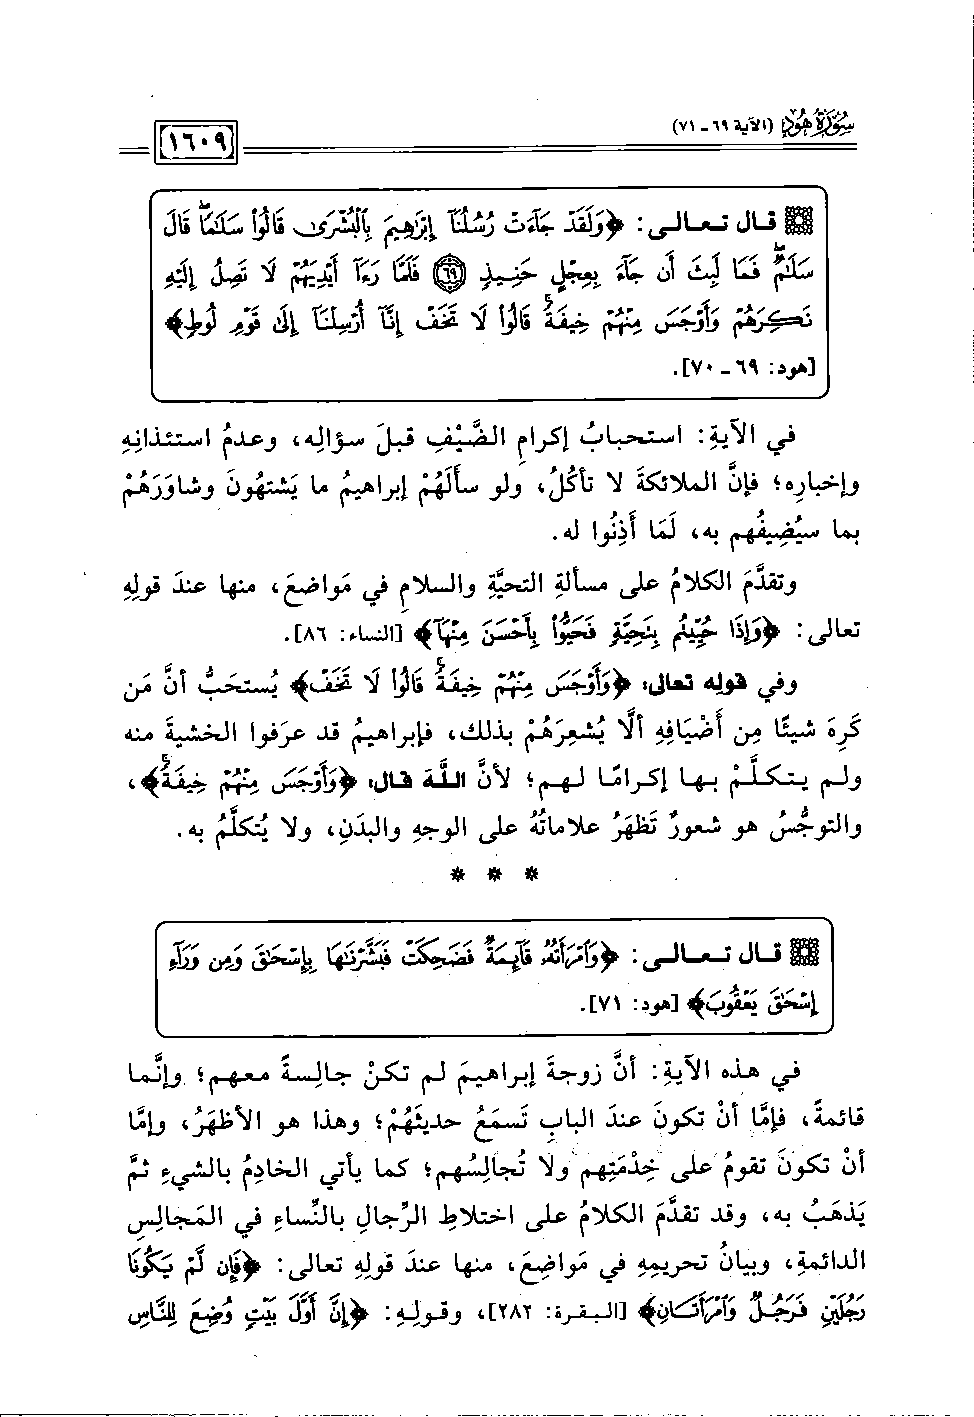 سُورَةُ هُودٍ (الآية ٦٩ ـ ٧١)
١٦٠٩
قال تعالى: ﴿وَلَقَدْ جَآءَتْ رُسُلُنَآ إِبْرَٰهِيمَ بِٱلْبُشْرَىٰ قَالُوا۟ سَلَٰمًا ۖ قَالَ
سَلَٰمٌ ۖ فَمَا لَبِثَ أَن جَآءَ بِعِجْلٍ حَنِيذٍ ﴿٦٩﴾ فَلَمَّا رَءَآ أَيْدِيَهُمْ لَا تَصِلُ إِلَيْهِ
نَكِرَهُمْ وَأَوْجَسَ مِنْهُمْ خِيفَةً ۚ قَالُوا۟ لَا تَخَفْ إِنَّآ أُرْسِلْنَآ إِلَىٰ قَوْمِ لُوطٍ﴾
[هود: ٦٩ ـ ٧٠].
في الآيةِ: استحبابُ إكرامِ الضَّيْفِ قبلَ سؤالِه، وعدمُ استئذانِهِ
وإخبارِه؛ فإنَّ الملائكةَ لا تأكُلُ، ولو سأَلَهُمْ إبراهيمُ ما يَشتهُونَ وشاوَرَهُمْ
بما سيُضِيفُهم به، لَمَا أَذِنُوا له.
وتقدَّمَ الكلامُ على مسألةِ التحيَّةِ والسلامِ في مَواضعَ، منها عندَ قولِهِ
تعالى: ﴿وَإِذَا حُيِّيتُم بِتَحِيَّةٍ فَحَيُّوا۟ بِأَحْسَنَ مِنْهَآ﴾ [النساء: ٨٦].
وفي قوله تعالى: ﴿وَأَوْجَسَ مِنْهُمْ خِيفَةً ۚ قَالُوا۟ لَا تَخَفْ﴾ يُستحَبُّ أنَّ مَن
كَرِهَ شيئًا مِن أَضْيَافِهِ ألَّا يُشعِرَهُمْ بذلك، فإبراهيمُ قد عرَفوا الخشيةَ منه
ولم يتكلَّمْ بها إكرامًا لهم؛ لأنَّ اللَّهَ قال: ﴿وَأَوْجَسَ مِنْهُمْ خِيفَةً ۚ﴾،
والتوجُّسُ هو شعورٌ تَظهَرُ علاماتُهُ على الوجهِ والبدَنِ، ولا يُتكلَّمُ به.
* * *
قال تعالى: ﴿وَٱمْرَأَتُهُۥ قَآئِمَةٌ فَضَحِكَتْ فَبَشَّرْنَٰهَا بِإِسْحَٰقَ وَمِن وَرَآءِ
إِسْحَٰقَ يَعْقُوبَ﴾ [هود: ٧١].
في هذه الآيةِ: أنَّ زوجةَ إبراهيمَ لم تكنْ جالِسةً معهم؛ وإنَّما
قائمةً، فإمَّا أنْ تكونَ عندَ البابِ تَسمَعُ حديثَهُمْ؛ وهذا هو الأظهَرُ، وإمَّا
أنْ تكونَ تقومُ على خِدْمَتِهم ولا تُجالِسُهم؛ كما يأتي الخادِمُ بالشيءِ ثمَّ
يَذهَبُ به، وقد تقدَّمَ الكلامُ على اختلاطِ الرِّجالِ بالنِّساءِ في المَجالِسِ
الدائمةِ، وبيانُ تحريمِهِ في مَواضِعَ، منها عندَ قولِهِ تعالى: ﴿فَإِن لَّمْ يَكُونَا
رَجُلَيْنِ فَرَجُلٌ وَٱمْرَأَتَانِ﴾ [البقرة: ٢٨٢]، وقولِهِ: ﴿إِنَّ أَوَّلَ بَيْتٍ وُضِعَ لِلنَّاسِ